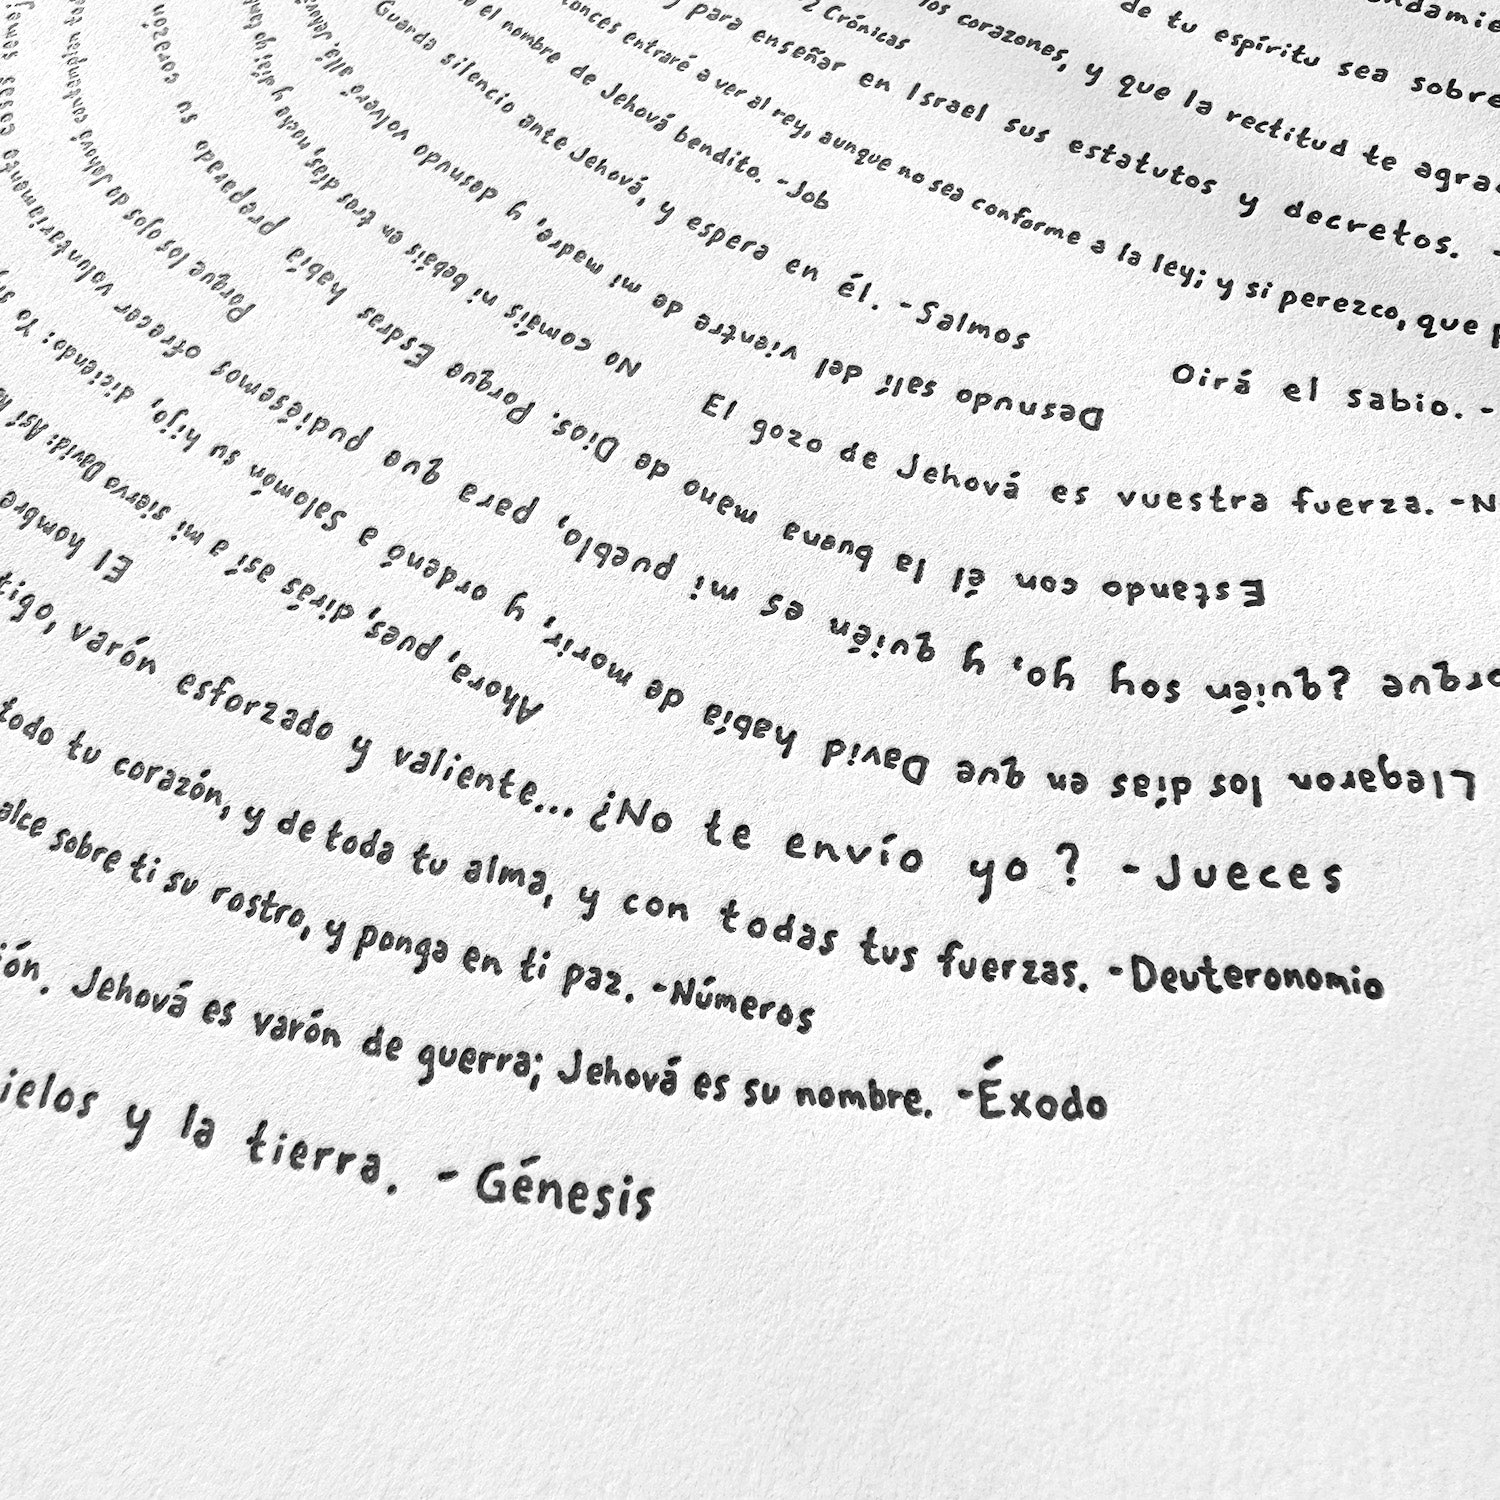 de tu espíritu sea sobre
los corazones, y que la rectitud te
2 Crónicas
y para enseñar en Israel sus estatutos y decretos. -
entraré a ver al rey, aunque no sea conforme a la ley; y si perezco, que
el nombre de Jehová bendito. -Job
Guarda silencio ante Jehová, y espera en él. -Salmos
Oirá el sabio. -
El gozo de Jehová es vuestra fuerza. -N
Desnudo salí del vientre de mi madre, y desnudo volveré allá.
No comáis ni bebáis en tres días, noche y día; yo
Estando con él la buena mano de Dios. Porque Esdras había preparado su corazón
Porque los ojos de Jehová contemplan
Porque ¿quién soy yo, y quién es mi pueblo, para que pudiésemos ofrecer voluntariamente cosas
Llegaron los días en que David había de morir, y ordenó a Salomón su hijo, diciendo: Yo
Ahora, pues, dirás así a mi siervo David: Así
El hombre
varón esforzado y valiente... ¿No te envío yo? -Jueces
todo tu corazón, y de toda tu alma, y con todas tus fuerzas. -Deuteronomio
alce sobre ti su rostro, y ponga en ti paz. -Números
Jehová es varón de guerra; Jehová es su nombre. -Éxodo
ielos y la tierra. - Génesis